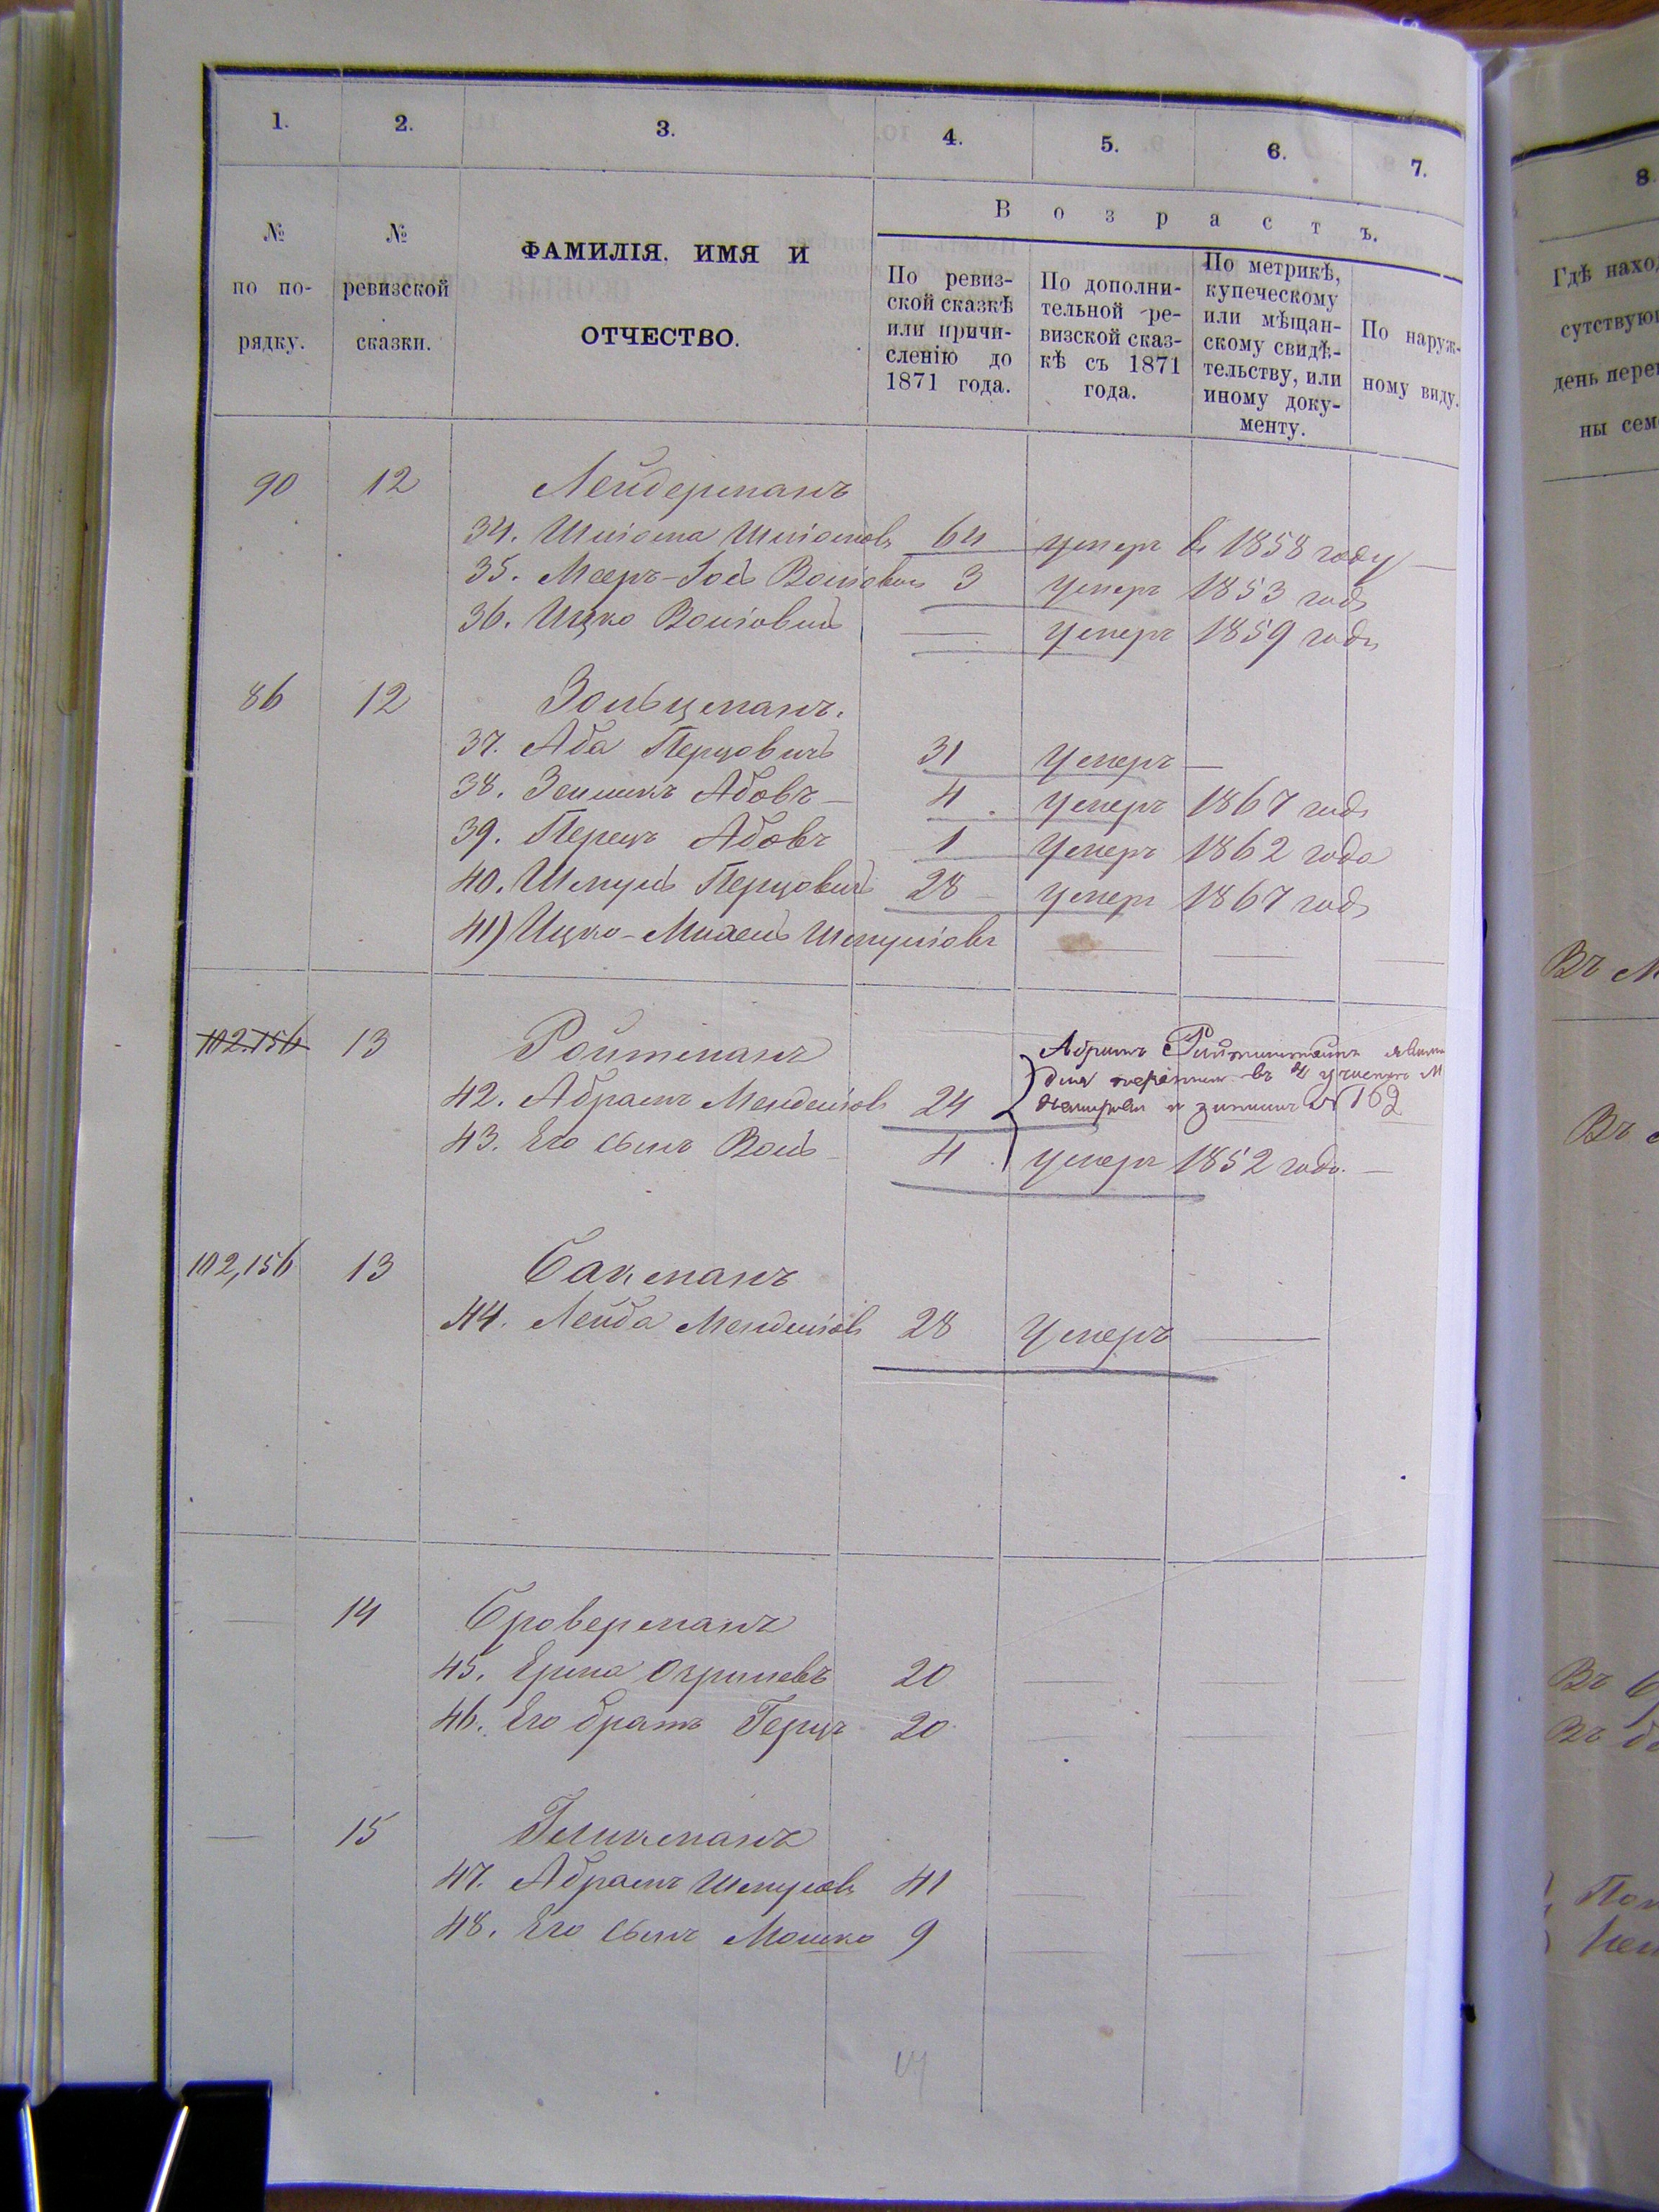 1. 2. 3. 4. 5. 6. 7.
№ по порядку.
№ ревизской сказки.
ФАМИЛІЯ. ИМЯ И ОТЧЕСТВО.
Возрастъ.
По ревиз-
ской сказкѣ
или причи-
сленію до
1871 года.
По дополни-
тельной ре-
визской сказ-
кѣ съ 1871
года.
По метрикѣ,
купеческому
или мѣщан-
скому свидѣ-
тельству, или
иному доку-
менту.
По наруж-
ному виду.
90 12 Лейдерманъ
34. Шліома Шліомовъ 64 умеръ в 1858 году
35. Мееръ-Іось Волiовичъ 3 умеръ 1853 года
36. Ицко Волiовичъ — умеръ 1859 года
86 12 Зольцманъ.
37. Аба Перцовичъ 31 умеръ —
38. Зельликъ Абовъ 4 умеръ 1867 года
39. Перецъ Абовъ 1 умеръ 1862 года
40. Шмуль Перцовичъ 28 умеръ 1867 года
41) Ицко-Михель Шмулiовъ — — —
102.156 13 Ройтманъ
Абрамъ Ройтманъ
42. Абрамъ Менделiовъ 24
въ участкѣ
и записанъ № 162
43. Его сынъ Воль 4 умеръ 1852 года. —
102,156 13 Бакманъ
44. Лейба Менделiовъ 28 умеръ —
— 14 Броверманъ
45. Ерма 20 — — —
46. Его братъ Герцъ 20 — — —
— 15 Гликманъ
47. Абрамъ Шмулевъ 41 — — —
48. Его сынъ Мошко 9 — — —
8
Гдѣ наход
сутствую
день пере
ны сем
Въ М
Въ
Въ
Въ